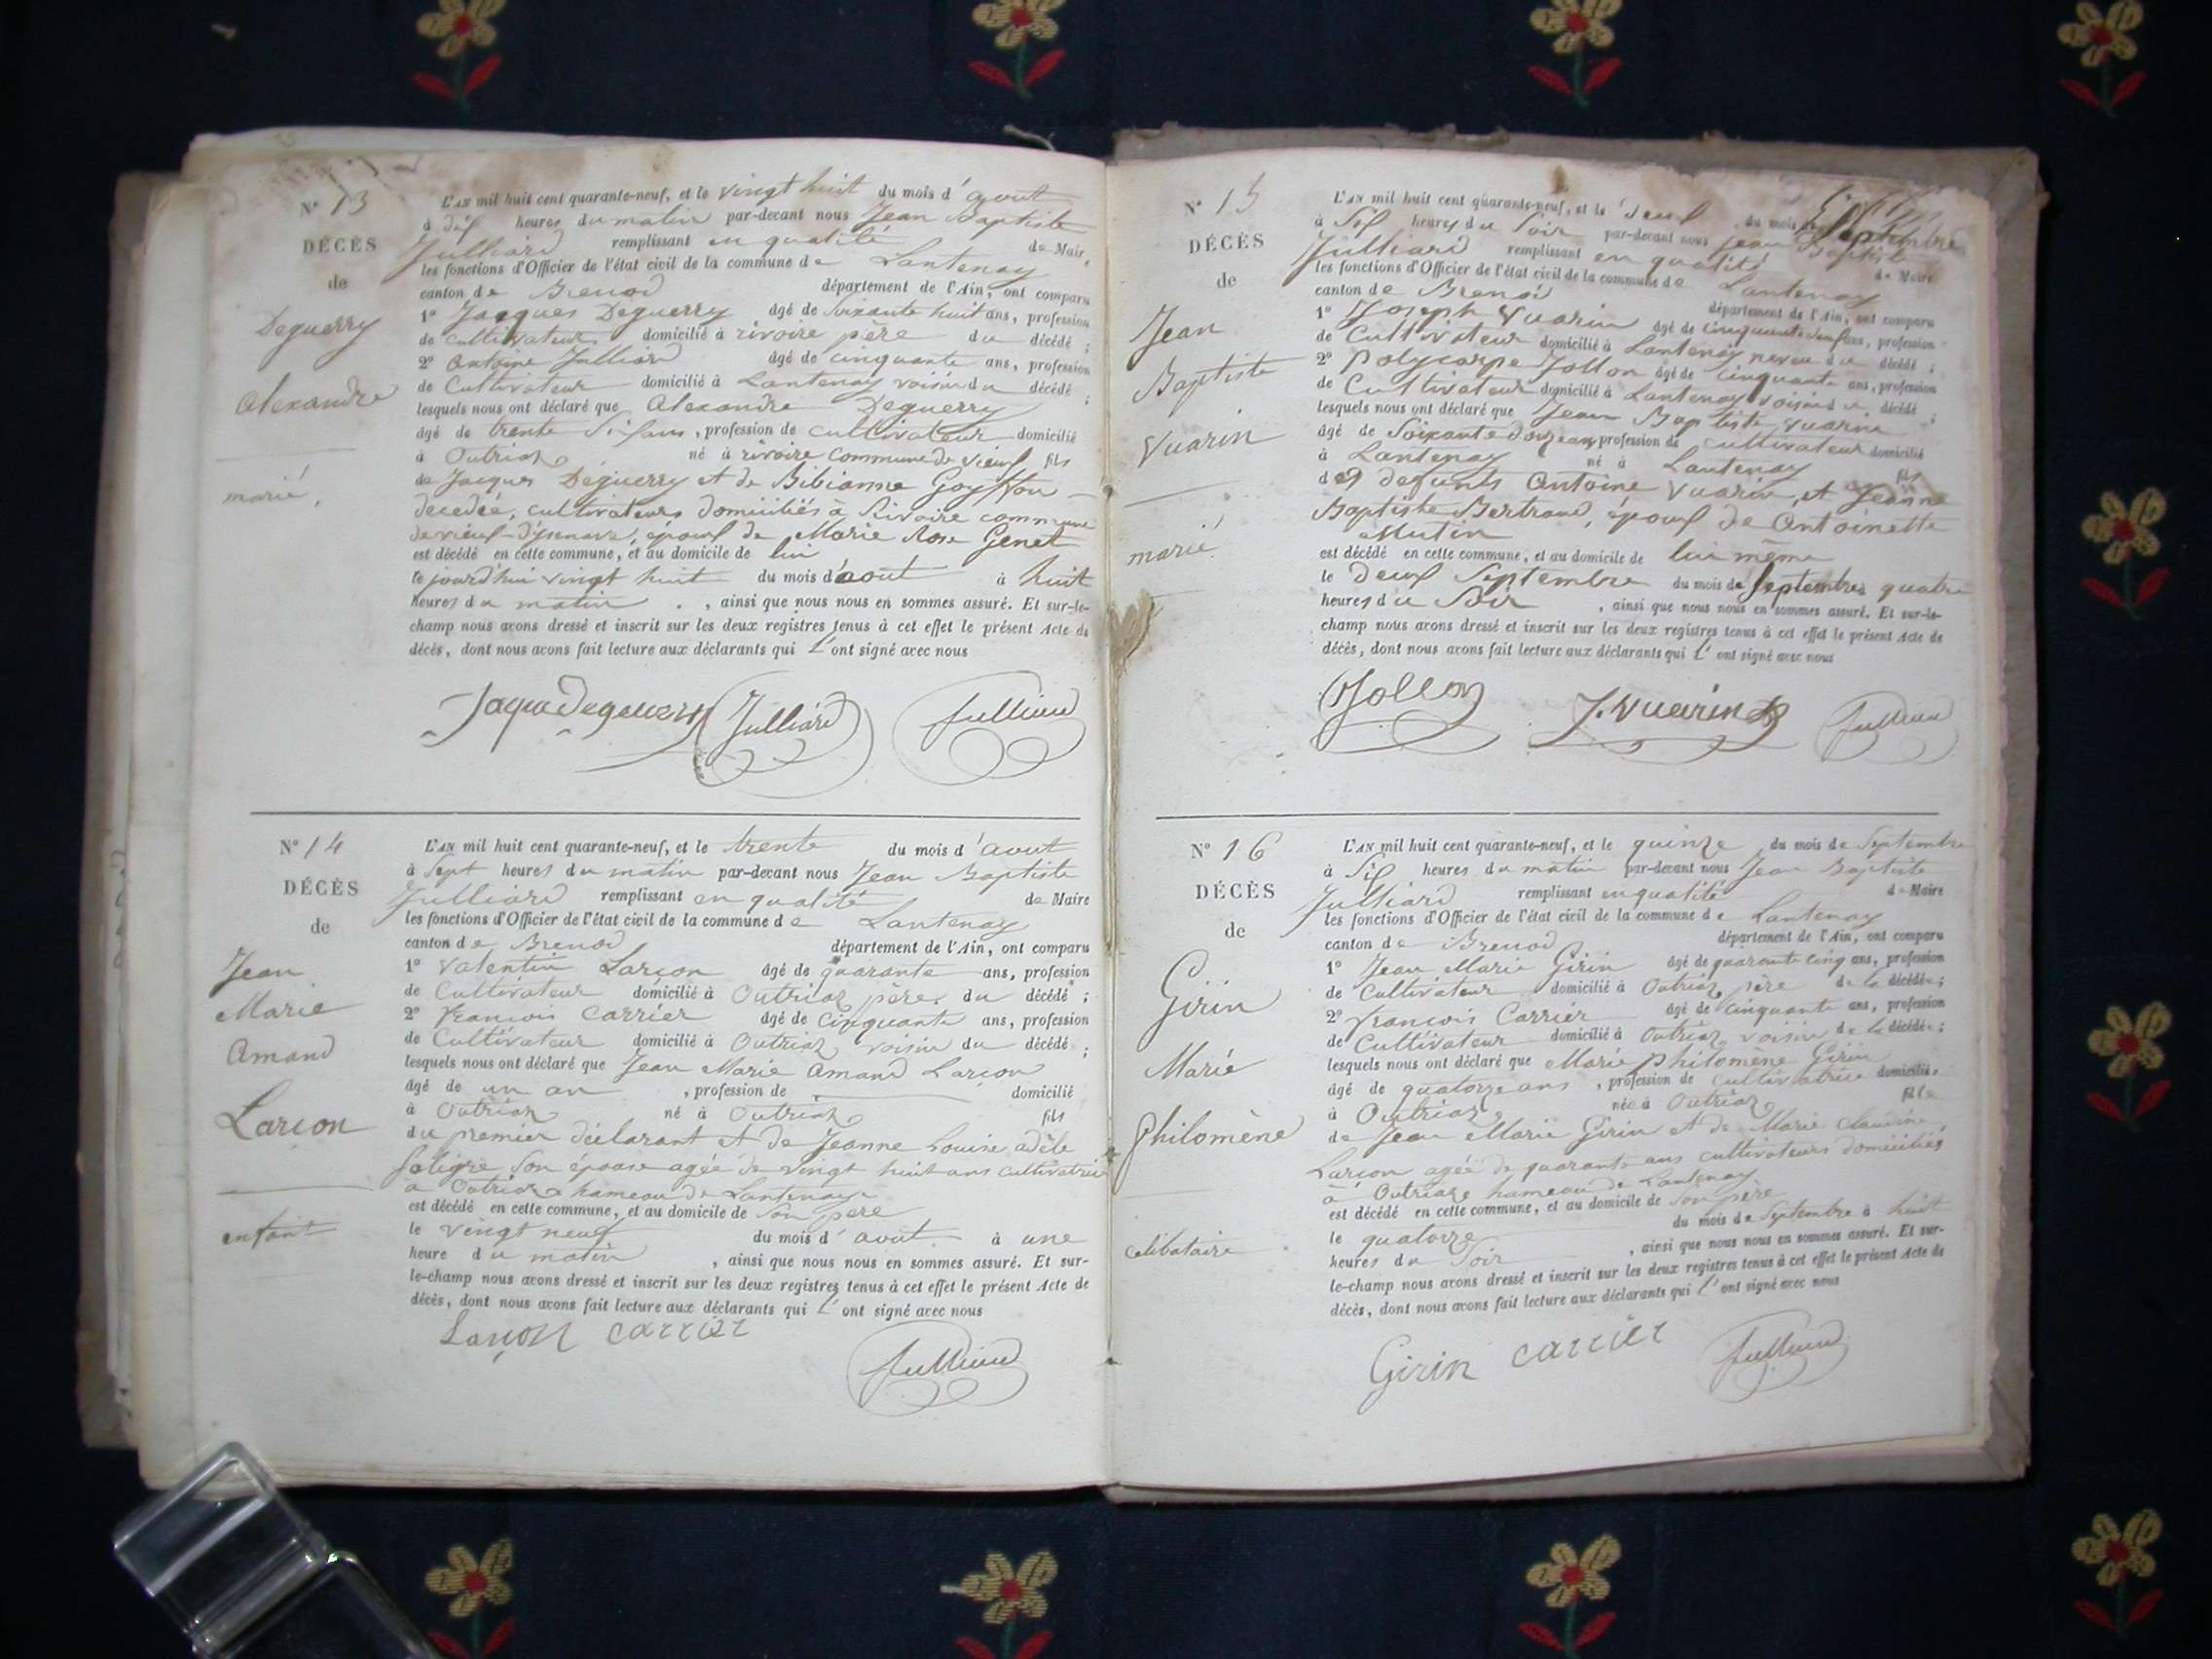 N° 13
DÉCÈS
de
Deguerry
Alexandre
marié.
L'AN mil huit cent quarante-neuf, et le vingt huit du mois d'août
à dix heures du matin par-devant nous Jean Baptiste
Julliard remplissant en qualité de Maire
les fonctions d'Officier de l'état civil de la commune de Lantenay
canton de Brenod département de l'Ain, ont comparu
1° Jacques Deguerry âgé de soixante huit ans, profession
de cultivateur domicilié à rivoire père du décédé ;
2° Antoine Julliard âgé de cinquante ans, profession
de Cultivateur domicilié à Lantenay voisin du décédé ;
lesquels nous ont déclaré que Alexandre Deguerry
âgé de trente six ans, profession de cultivateur domicilié
à Outriaz né à rivoire commune de vieux fils
de Jacques Deguerry et de Bibianne Goyffon
decedée, cultivateurs domiciliés à Rivoire commune
de vieux-d'Izenave, époux de Marie Rose Genet
est décédé en cette commune, et au domicile de lui
le jourd'hui vingt huit du mois d'août à huit
heures du matin , ainsi que nous nous en sommes assuré. Et sur-le-
champ nous avons dressé et inscrit sur les deux registres tenus à cet effet le présent Acte de
décès, dont nous avons fait lecture aux déclarants qui l'ont signé avec nous
Julliard Julliard
N° 14
DÉCÈS
de
Jean
Marie
Amand
Larçon
enfant
L'AN mil huit cent quarante-neuf, et le trente du mois d'août
à Sept heures du matin par-devant nous Jean Baptiste
Julliard remplissant en qualité de Maire
les fonctions d'Officier de l'état civil de la commune de Lantenay
canton de Brenod département de l'Ain, ont comparu
1° Valentin Larçon âgé de quarante ans, profession
de Cultivateur domicilié à Outriaz père du décédé ;
2° François Carrier âgé de cinquante ans, profession
de Cultivateur domicilié à Outriaz voisin du décédé ;
lesquels nous ont déclaré que Jean Marie Amand Larçon
âgé de un an , profession de domicilié
à Outriaz né à Outriaz fils
du premier déclarant et de Jeanne Louise adèle
son épouse agée de vingt huit ans cultivatrice
a Outriaz hameau de Lantenay
est décédé en cette commune, et au domicile de Son père
le vingt neuf du mois d'août à une
heure du matin , ainsi que nous nous en sommes assuré. Et sur-
le-champ nous avons dressé et inscrit sur les deux registres tenus à cet effet le présent Acte de
décès, dont nous avons fait lecture aux déclarants qui l'ont signé avec nous
Larçon carrier
Julliard
N° 15
DÉCÈS
de
Jean
Baptiste
Vuarin
marié.
L'AN mil huit cent quarante-neuf, et le deux du mois de Septembre
à Six heures du Soir par-devant nous Jean Baptiste
Julliard remplissant en qualité de Maire
les fonctions d'Officier de l'état civil de la commune de Lantenay
canton de Brenod département de l'Ain, ont comparu
1° Joseph Vuarin âgé de ans, profession
de Cultivateur domicilié à Lantenay neveu du décédé ;
2° Polycarpe Jollon âgé de cinquante ans, profession
de Cultivateur domicilié à Lantenay voisin du décédé ;
lesquels nous ont déclaré que Jean Baptiste Vuarin
âgé de Soixante douze ans, profession de cultivateur domicilié
à Lantenay né à Lantenay fils
des defunts Antoine Vuarin, et Jeanne
Baptiste Bertrand, époux de Antoinette
Mutin
est décédé en cette commune, et au domicile de lui même
le deux Septembre du mois de Septembre quatre
heures du Soir , ainsi que nous nous en sommes assuré. Et sur-le-
champ nous avons dressé et inscrit sur les deux registres tenus à cet effet le présent Acte de
décès, dont nous avons fait lecture aux déclarants qui l'ont signé avec nous
Jollon J. Vuarin Julliard
N° 16
DÉCÈS
de
Girin
Marie
Philomène
celibataire
L'AN mil huit cent quarante-neuf, et le quinze du mois de Septembre
à Six heures du matin par-devant nous Jean Baptiste
Julliard remplissant en qualité de Maire
les fonctions d'Officier de l'état civil de la commune de Lantenay
canton de Brenod département de l'Ain, ont comparu
1° Jean Marie Girin âgé de quarante cinq ans, profession
de Cultivateur domicilié à Outriaz père de la décédée ;
2° François Carrier âgé de cinquante ans, profession
de Cultivateur domicilié à Outriaz voisin de la décédée ;
lesquels nous ont déclaré que Marie Philomène Girin
âgé de quatorze ans , profession de cultivatrice domicilié
à Outriaz née à Outriaz fille
de Jean Marie Girin et de Marie Claudine
Larçon agée de quarante ans cultivateurs domiciliés
à Outriaz hameau de Lantenay
est décédé en cette commune, et au domicile de Son père
le quatorze du mois de Septembre à huit
heures du Soir , ainsi que nous nous en sommes assuré. Et sur-
le-champ nous avons dressé et inscrit sur les deux registres tenus à cet effet le présent Acte de
décès, dont nous avons fait lecture aux déclarants qui l'ont signé avec nous
Girin carrier Julliard